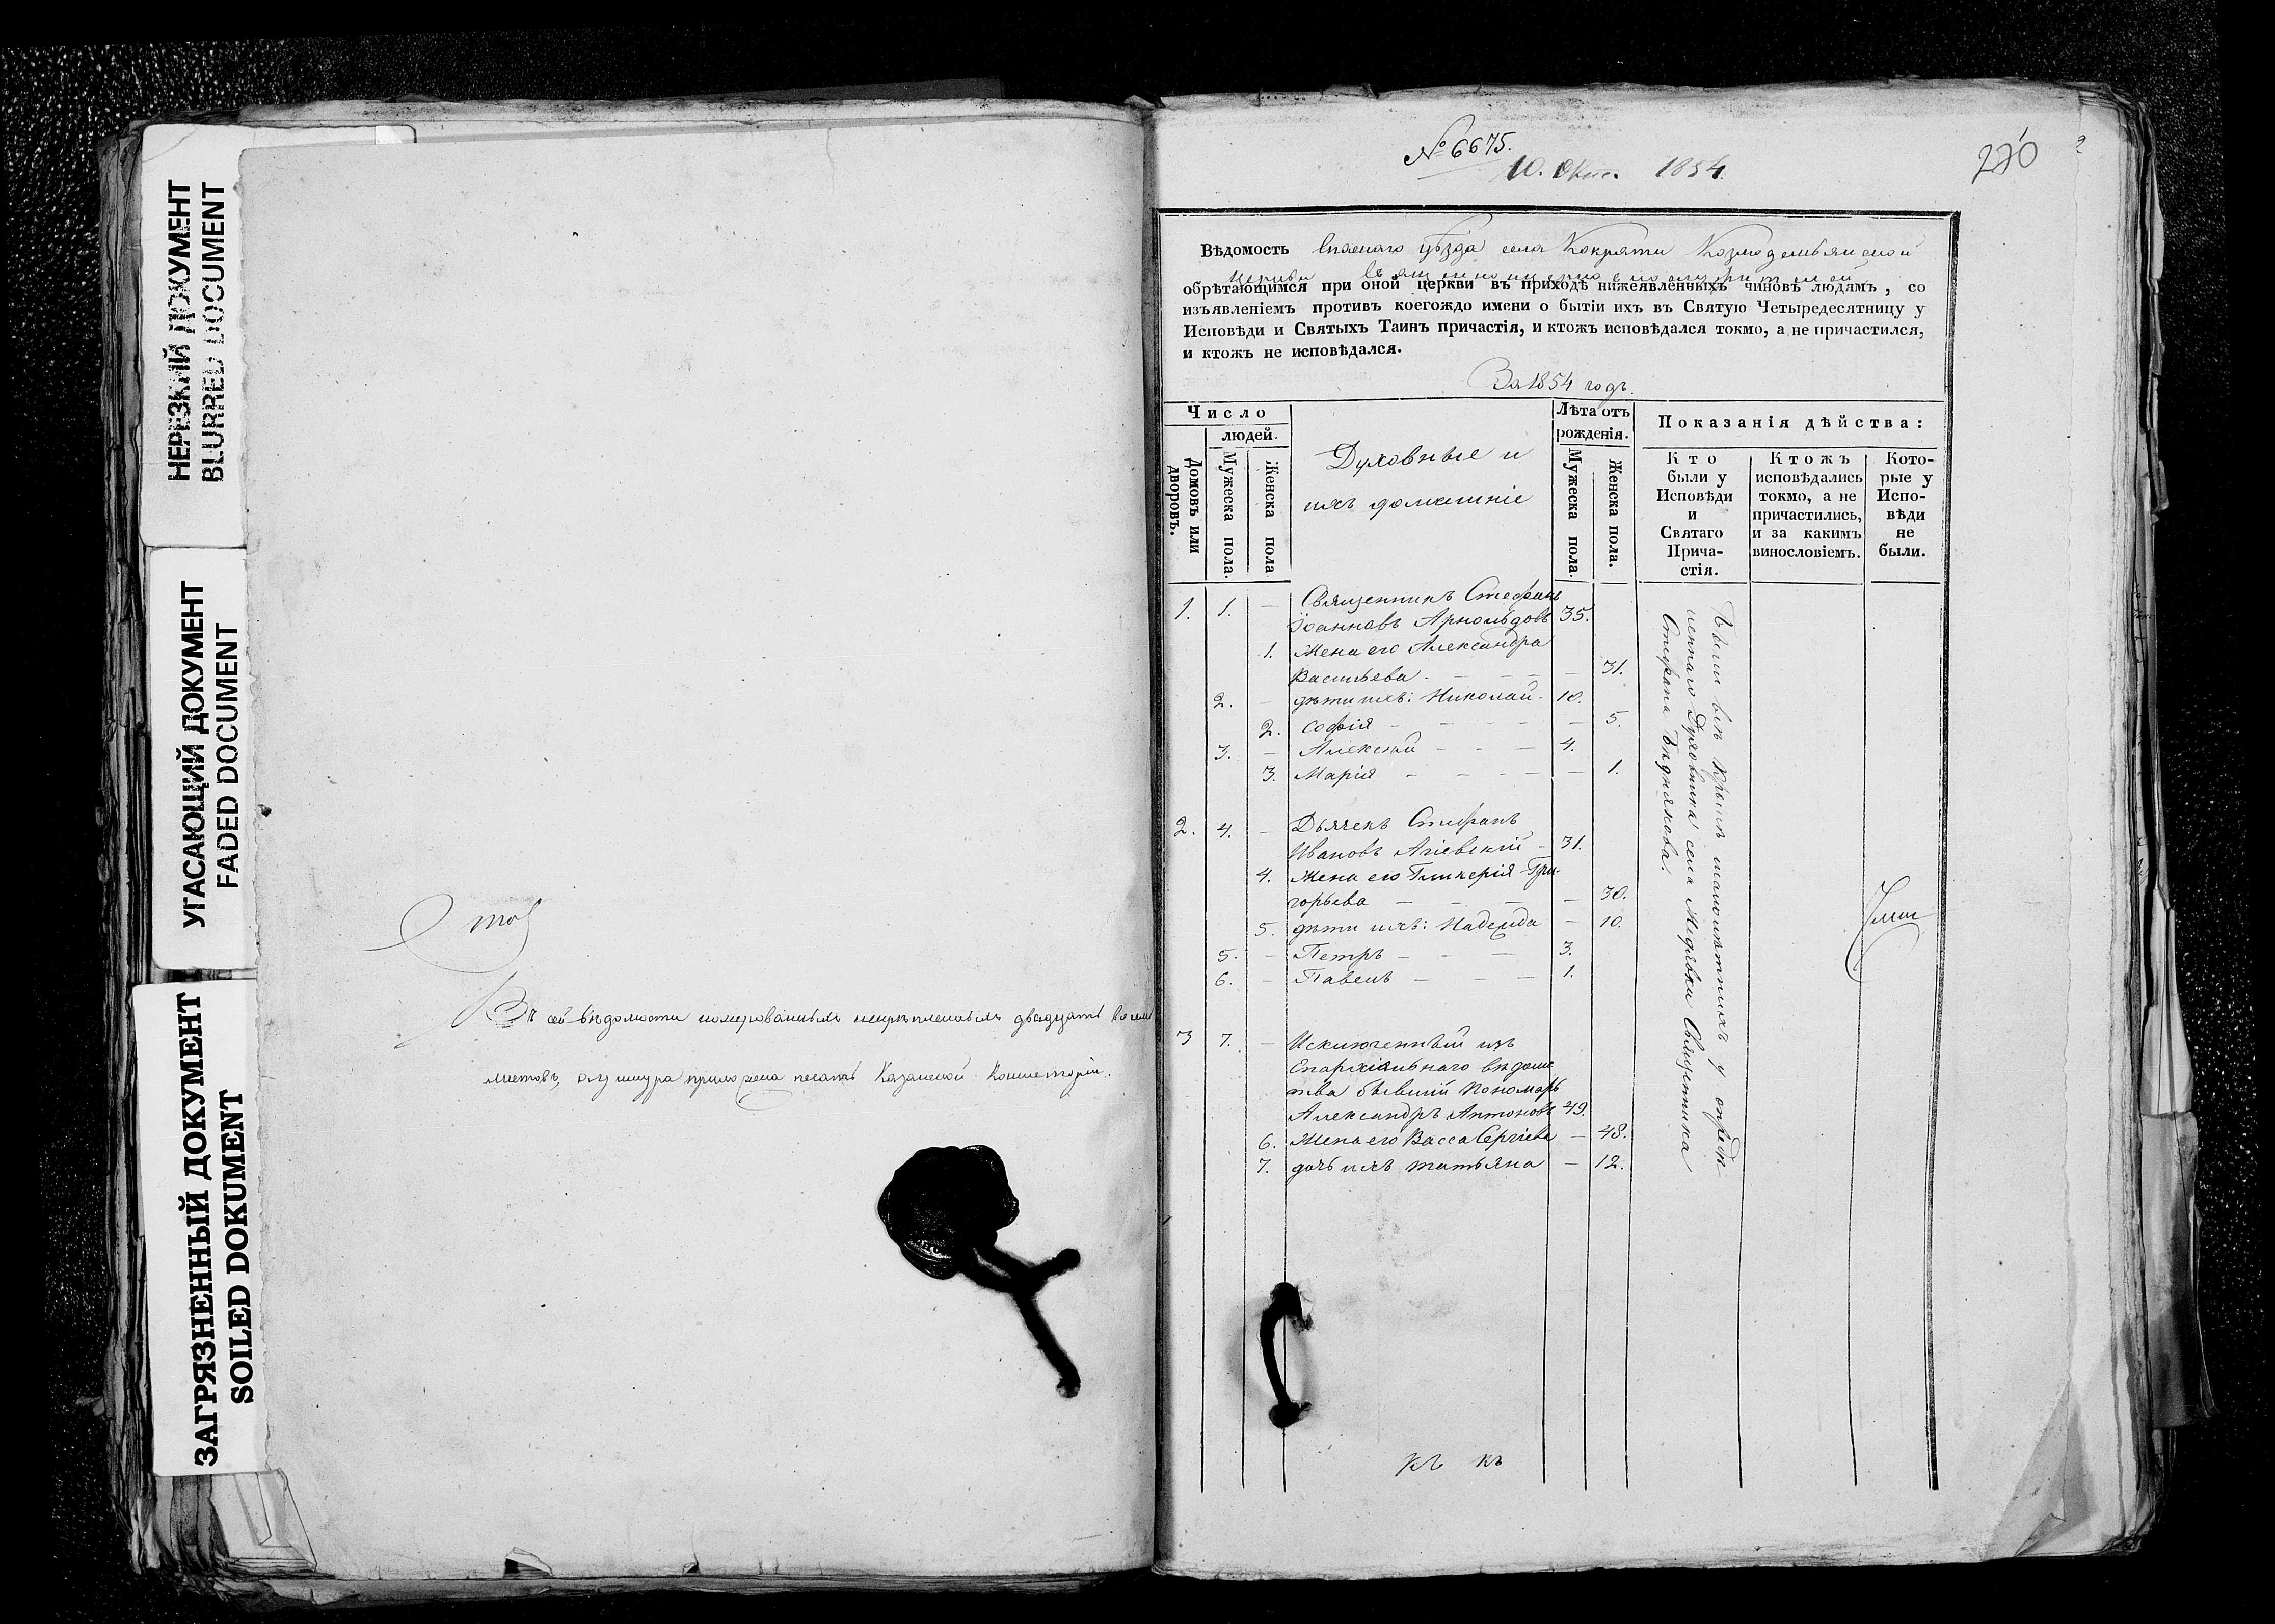 НЕРЕЗКИЙ ДОКУМЕНТ
BLURRED DOCUMENT
УГАСАЮЩИЙ ДОКУМЕНТ
FADED DOCUMENT
ЗАГРЯЗНЕННЫЙ ДОКУМЕНТ
SOILED DOKUMENT
Въ сей вѣдомости двадцать
листовъ, а у шнура приложена печать Казанской Консисторіи.
№ 6675.
10. Окт. 1854.
Вѣдомость Спаскаго уѣзда села Кокряти Козмодемьянской
церкви
обрѣтающимся при оной церкви въ приходѣ нижеявленныхъ чиновъ людямъ, со
изъявленіемъ противъ коегождо имени о бытіи ихъ въ Святую Четыредесятницу у
Исповѣди и Святыхъ Таинъ причастія, и ктожъ исповѣдался токмо, а не причастился,
и ктожъ не исповѣдался.
За 1854 годъ.
Число
людей.
Домовъ или дворовъ.
Мужеска пола.
Женска пола
Духовные и
ихъ домашніе
Лѣта отъ
рожденія.
Мужеска пола.
Женска пола.
Показанія дѣйства:
Кто
были у
Исповѣди
и
Святаго
Прича-
стія.
Ктожъ
исповѣдались
токмо, а не
причастились,
и за какимъ
винословіемъ.
Кото-
рые у
Испо-
вѣди
не
были.
1. 1. — Священникъ Стефанъ
Іоанновъ Арнольдовъ 35.
1. Жена его Александра
Васильева — 31.
2. — дѣти ихъ: Николай 10.
2. Софія — 5.
3. — Алексѣй — 4.
3. Марія — 1.
2. 4. — Дьячекъ Стефанъ
Ивановъ Агіевскій — 31.
4. Жена его Гликерія Гри-
горьева — 30.
5. дѣти ихъ: Надежда — 10.
5. — Петръ — 3.
6. — Павелъ — 1.
3 7. — Исключенный изъ
Епархіальнаго вѣдомс
тва бывшій Пономарь
Александръ Антоновъ 49.
6. Жена его Васса Сергіева — 48.
7. дочь ихъ Татьяна — 12.
Были всѣ кромѣ малолѣтнихъ у опредѣ-
леннаго Духовника села Медяжки Священника
Стефана Бѣднякова.
къ къ